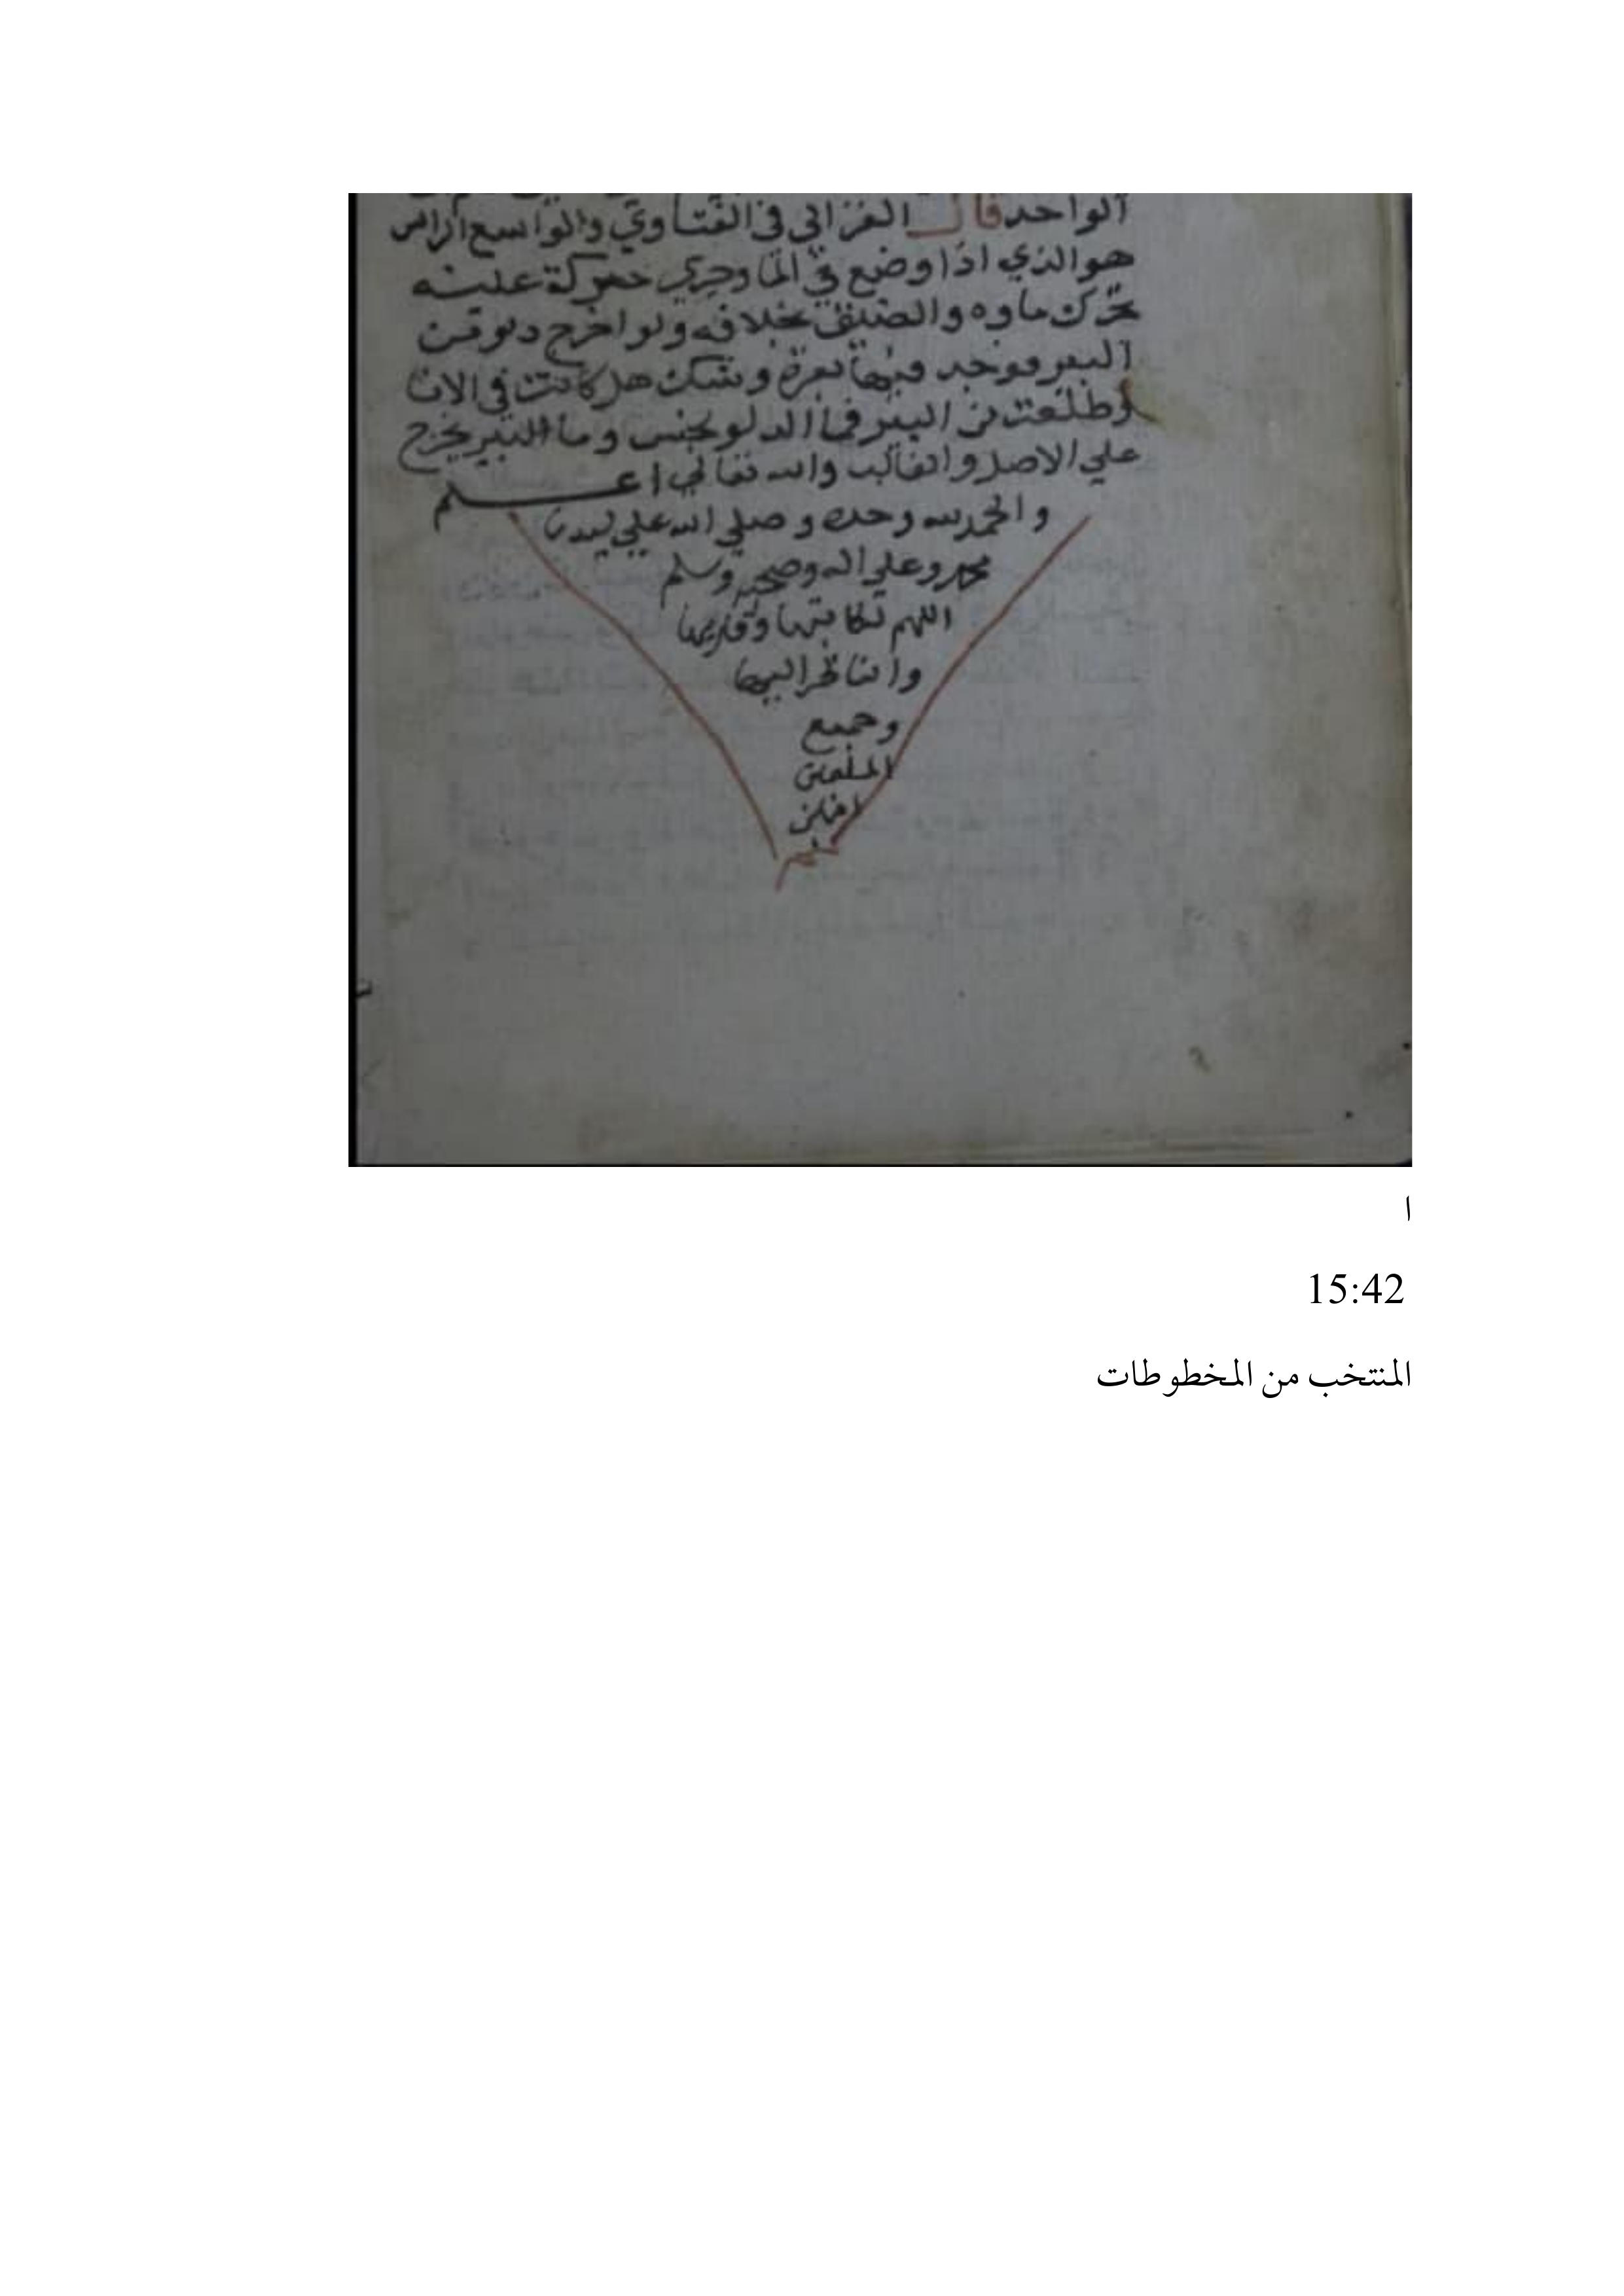 الواحد قال الغزالي في الفتاوي والواسع الراس
هو الذي اذا وضع في الما وحري حركة عليه
تحرك ماوه والضيق بخلافه ولو اخرج دلو من
البير فوجد فيها بعرة وشك هل كانت في الانا
او طلعت من البير فما الدلو نجس وما البير يخرج
علي الاصل والغالب والله تعالي اعلم
والحمد لله وحده وصلي الله علي سيدنا
محمد وعلي اله وصحبه وسلم
اللهم لكاتبها وقاريها
والناظر اليها
وجميع
المسلمين
امين
ا
15:42
المنتخب من المخطوطات